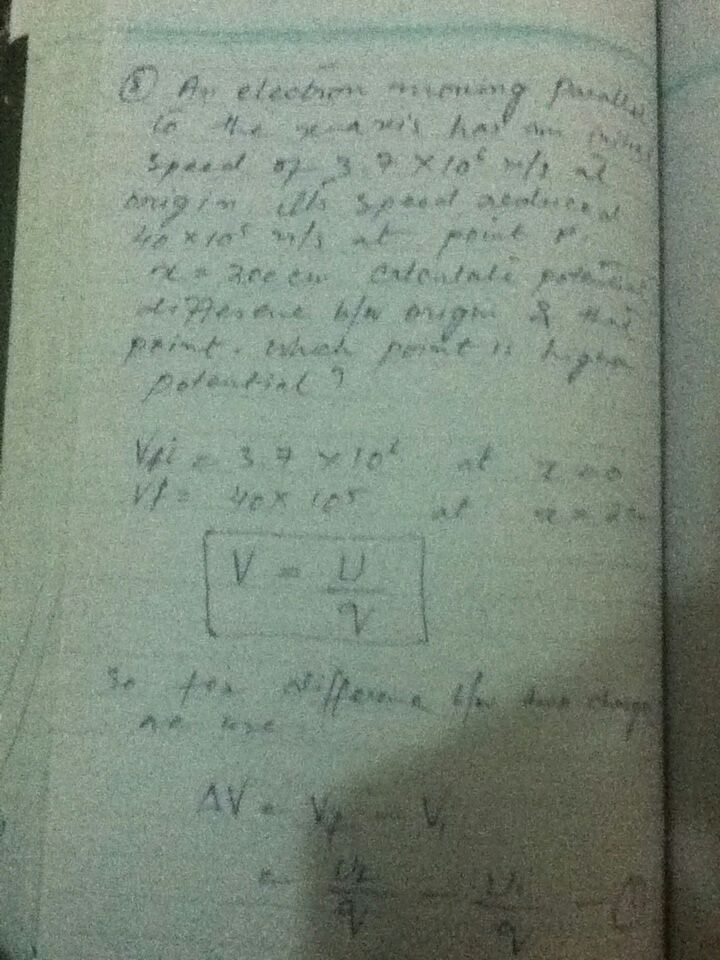 ⑧ An electron moving Parallel
to the x-axis has an initial
speed of 3.7 × 10⁶ m/s at
origin. Its speed reduced
40 × 10⁵ m/s at point
x = 200 cm calculate potential
difference b/w origin & this
point. which point is higher
potential?
Vi = 3.7 × 10⁶ at x = 0
Vf = 40 × 10⁵ at x = 2cm
V = U
q
So for difference b/w two charges
we use
ΔV = Vf - Vi
= Uf / q - Ui / q